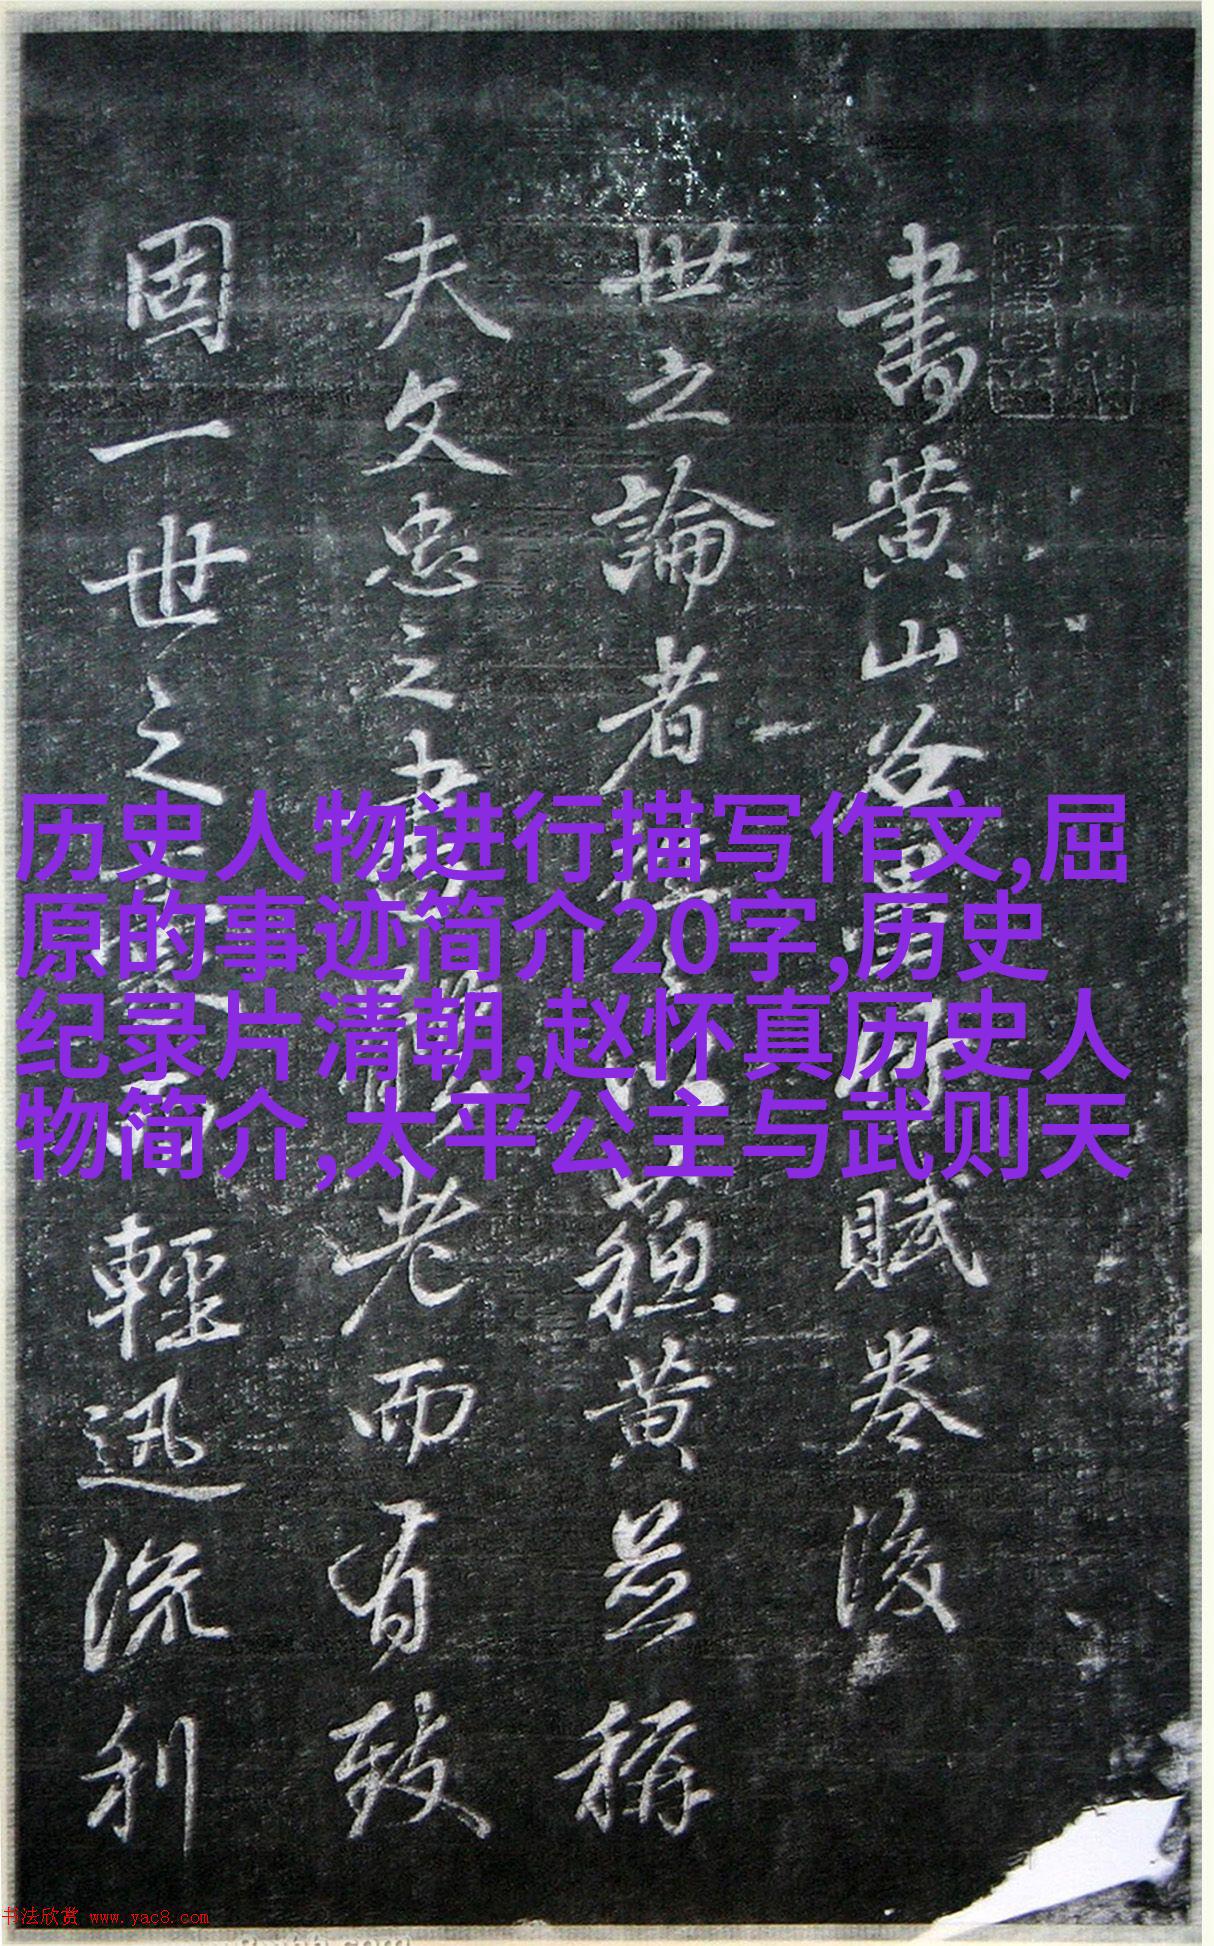 書黄山谷賦卷後
世之論者以蘓黄並稱
夫文忠之書老而有致
固一世之輕迅流利
历史人物进行描写作文,屈
原的事迹简介20字,历史
纪录片清朝,赵怀真历史人
物简介,太平公主与武则天
书法欣赏 www.yac8.com